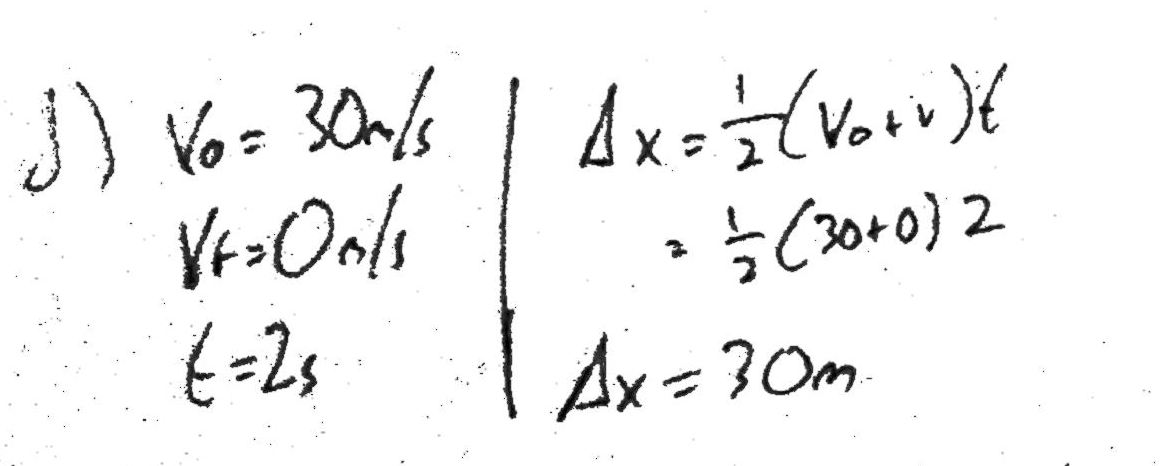 J) V₀ = 30m/s
Vf = 0m/s
t = 2s
Δx = 1/2 (V₀ + v) t
= 1/2 (30 + 0) 2
Δx = 30m